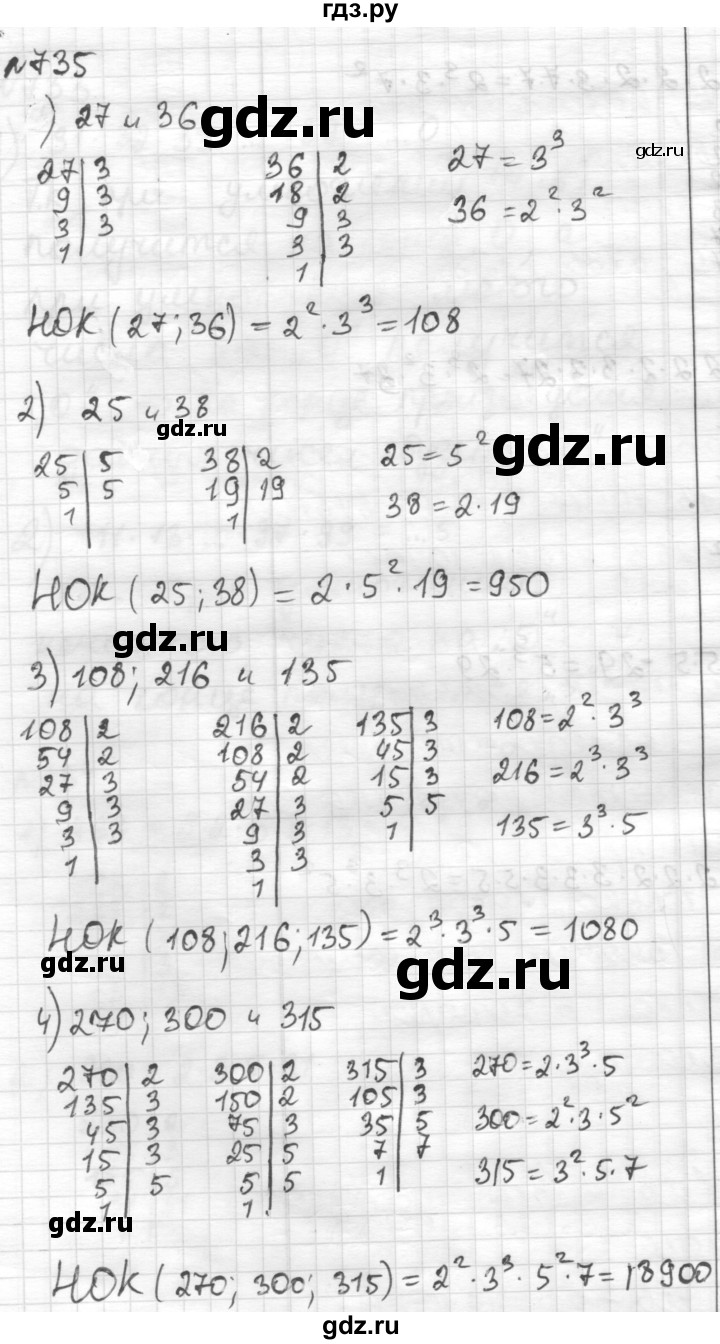 гдз.ру
№735
1) 27 и 36
gdz.ru
27 | 3
9 | 3
3 | 3
1
36 | 2
18 | 2
9 | 3
3 | 3
1
27 = 3³
36 = 2² · 3²
gdz.ru
НОК (27; 36) = 2² · 3³ = 108
2) 25 и 38
gdz.ru
25 | 5
5 | 5
1
38 | 2
19 | 19
1
25 = 5²
38 = 2 · 19
gdz.ru
НОК (25; 38) = 2 · 5² · 19 = 950
gdz.ru
3) 108; 216 и 135
108 | 2
54 | 2
27 | 3
9 | 3
3 | 3
1
216 | 2
108 | 2
54 | 2
27 | 3
9 | 3
3 | 3
1
135 | 3
45 | 3
15 | 3
5 | 5
1
108 = 2² · 3³
216 = 2³ · 3³
135 = 3³ · 5
НОК (108; 216; 135) = 2³ · 3³ · 5 = 1080
gdz.ru
gdz.ru
4) 270; 300 и 315
270 | 2
135 | 3
45 | 3
15 | 3
5 | 5
1
300 | 2
150 | 2
75 | 3
25 | 5
5 | 5
1
315 | 3
105 | 3
35 | 5
7 | 7
1
270 = 2 · 3³ · 5
300 = 2² · 3 · 5²
315 = 3² · 5 · 7
gdz.ru
НОК (270; 300; 315) = 2² · 3³ · 5² · 7 = 18900
gdz.ru